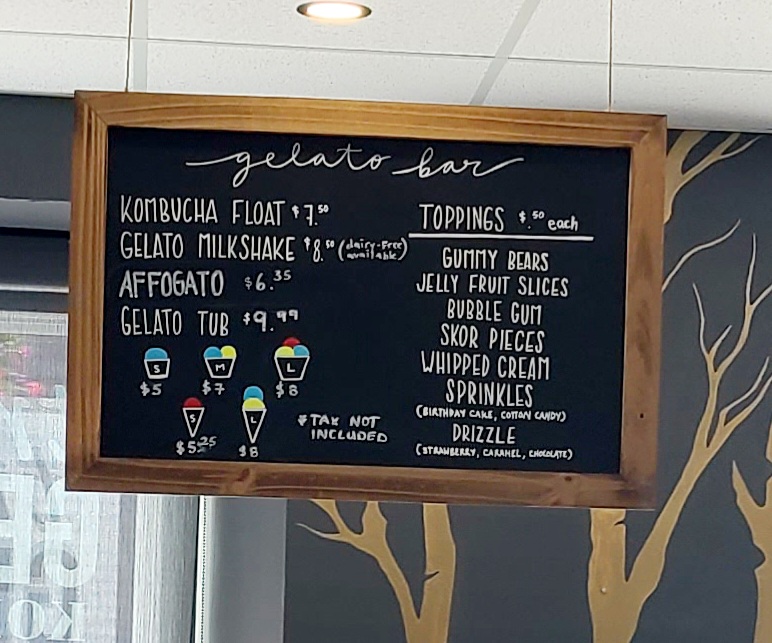 gelato bar
KOMBUCHA FLOAT $7.50
GELATO MILKSHAKE $8.50 (dairy-free available)
AFFOGATO $6.35
GELATO TUB $9.99
S M L
$5 $7 $8
S L
$5.25 $8
*TAX NOT
INCLUDED
TOPPINGS $.50 each
GUMMY BEARS
JELLY FRUIT SLICES
BUBBLE GUM
SKOR PIECES
WHIPPED CREAM
SPRINKLES
(BIRTHDAY CAKE, COTTON CANDY)
DRIZZLE
(STRAWBERRY, CARAMEL, CHOCOLATE)